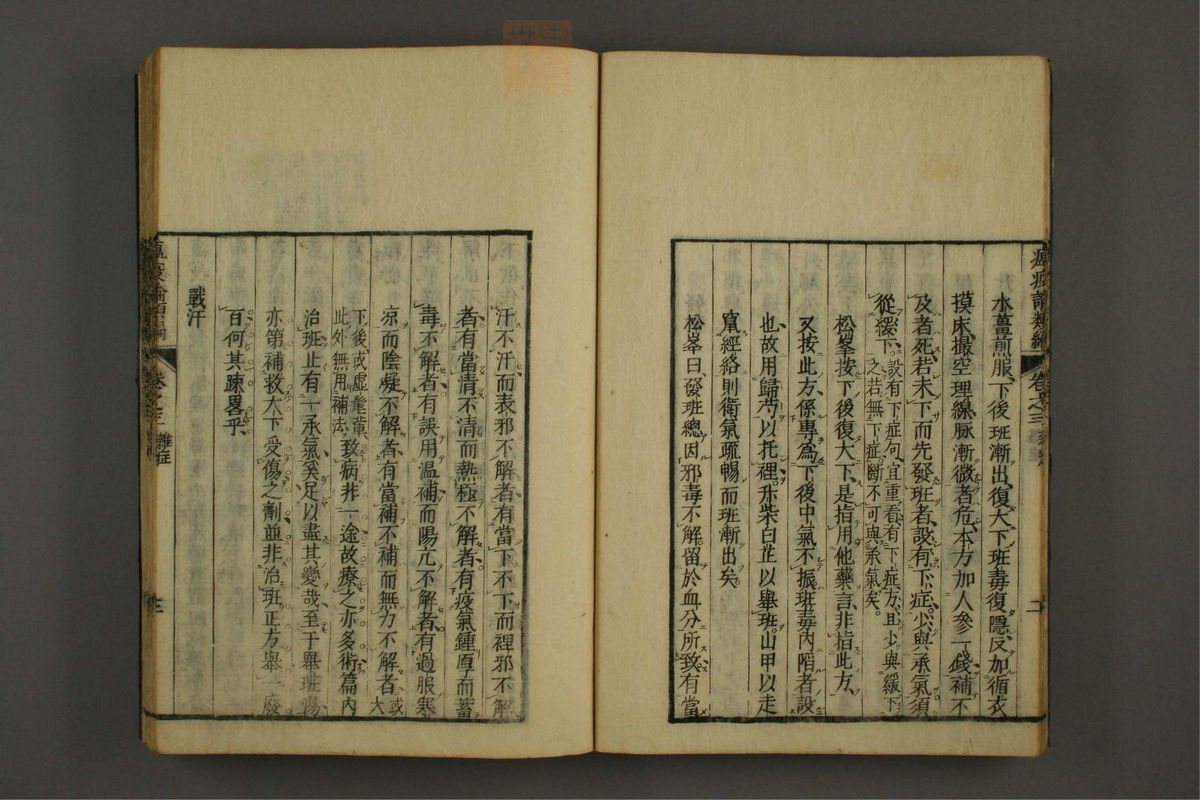 瘟疫論類編
卷之三
水薑煎服、下後班漸出、復大下班毒復隱、反加循衣
摸床撮空理線脉漸微者危、本方加人參一錢補不
及者死若未下而先發班者、設有下症、少與承氣須
從緩下、設有下症句、宜重看有下症方、且少與緩下
之若無下症斷不可與承氣矣。
松峯按下後復大下、是指用他藥言、非指此方、
又按此方、係專為下後中氣不振班毒內陷者設
也故用歸芍以托裡。升柴白芷以舉班。山甲以走
竄經絡則衛氣疏暢而班漸出矣。
松峯曰、發班總因邪毒不解留於血分所致有當
汗不汗而表邪不解者有當下不下而裡邪不解
者有當清不清而熱極不解者有疫氣鍾厚而蓄
毒不解者有誤用温補而陽亢不解者有過服寒
凉而陰凝不解者有當補不補而無力不解者、或大
下後或虛髦輩、
此外無用補法、致病非一途故療之亦多術篇内
治班止有一承氣奚足以盡其變哉至于舉班湯
亦第補救大下受傷之劑並非治班正方舉一廢
百何其疎畧乎、
戰汗
瘟疫論類編
卷之三
雜症